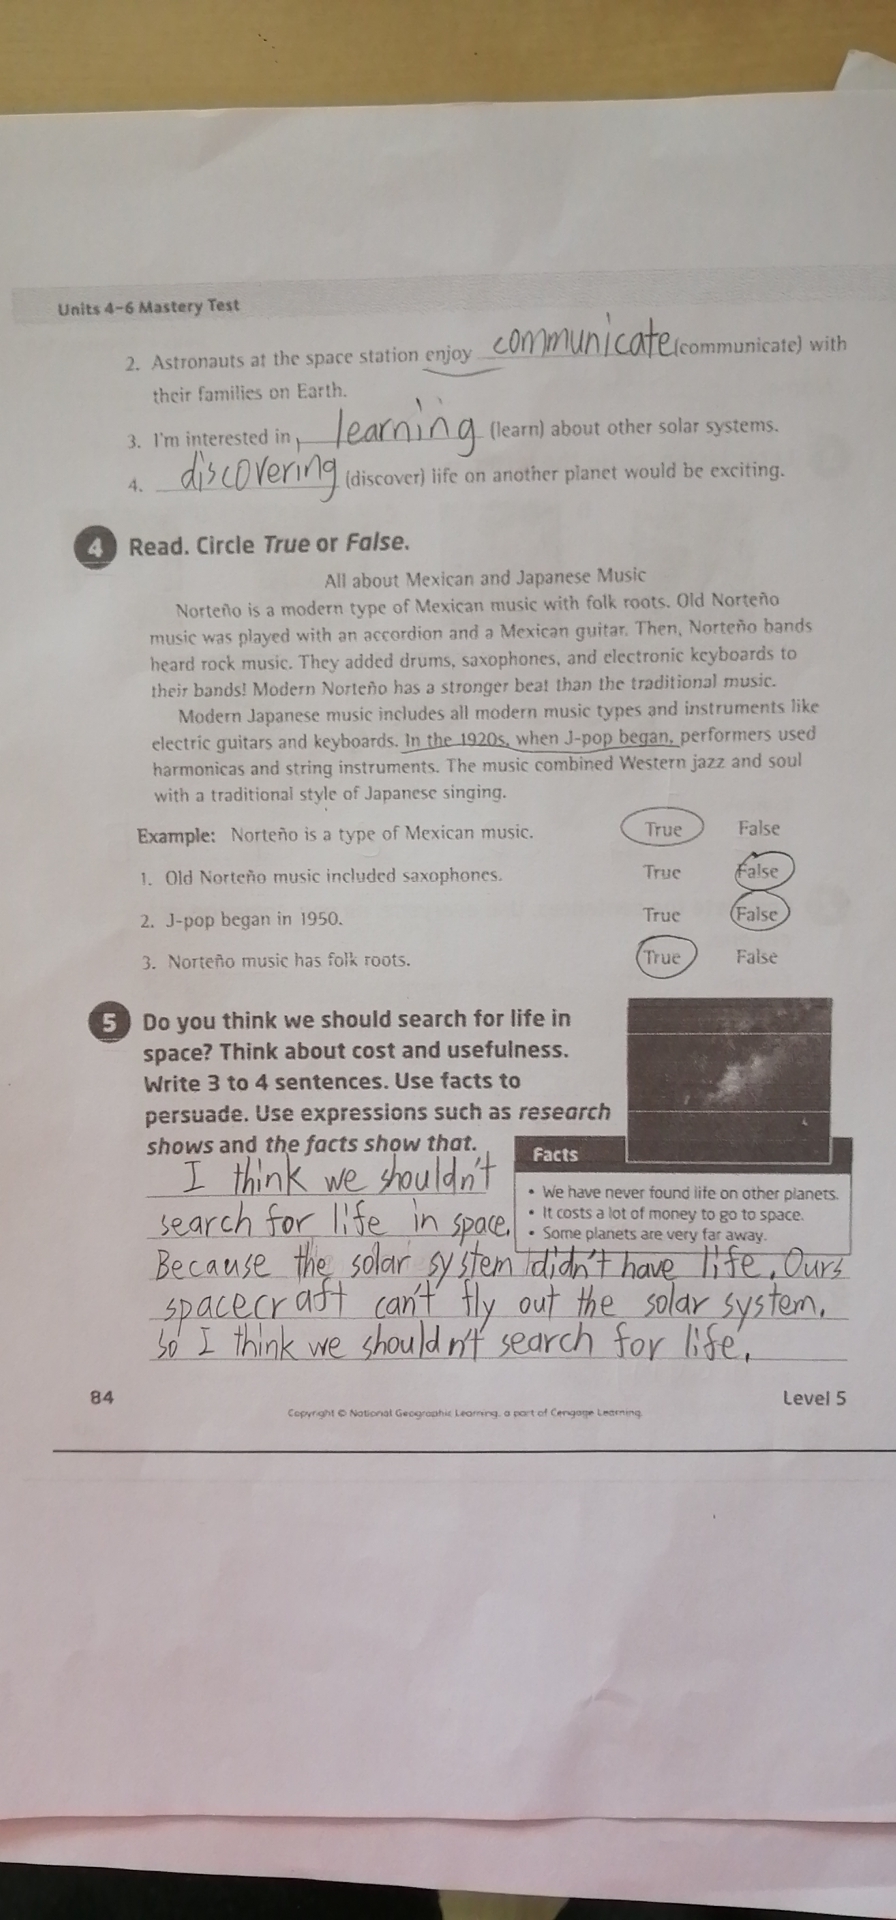 Units 4-6 Mastery Test
2. Astronauts at the space station enjoy communicate (communicate) with
their families on Earth.
3. I'm interested in learning (learn) about other solar systems.
4. discovering (discover) life on another planet would be exciting.
4 Read. Circle True or False.
All about Mexican and Japanese Music
Norteño is a modern type of Mexican music with folk roots. Old Norteño
music was played with an accordion and a Mexican guitar. Then, Norteño bands
heard rock music. They added drums, saxophones, and electronic keyboards to
their bands! Modern Norteño has a stronger beat than the traditional music.
Modern Japanese music includes all modern music types and instruments like
electric guitars and keyboards. In the 1920s, when J-pop began, performers used
harmonicas and string instruments. The music combined Western jazz and soul
with a traditional style of Japanese singing.
Example: Norteño is a type of Mexican music. True False
1. Old Norteño music included saxophones. True False
2. J-pop began in 1950. True False
3. Norteño music has folk roots. True False
5 Do you think we should search for life in
space? Think about cost and usefulness.
Write 3 to 4 sentences. Use facts to
persuade. Use expressions such as research
shows and the facts show that.
Facts
• We have never found life on other planets.
• It costs a lot of money to go to space.
• Some planets are very far away.
I think we shouldn't
search for life in space.
Because the solar system didn't have life. Ours
spacecraft can't fly out the solar system.
So I think we shouldn't search for life.
84
Level 5
Copyright © National Geographic Learning, a part of Cengage Learning.